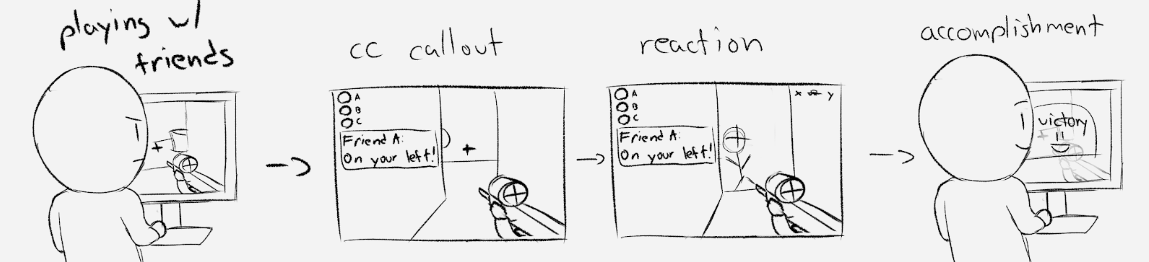 playing w/
friends
cc callout
A
B
C
Friend A:
On your left!
reaction
A
B
C
Friend A:
On your left!
x
y
accomplishment
victory